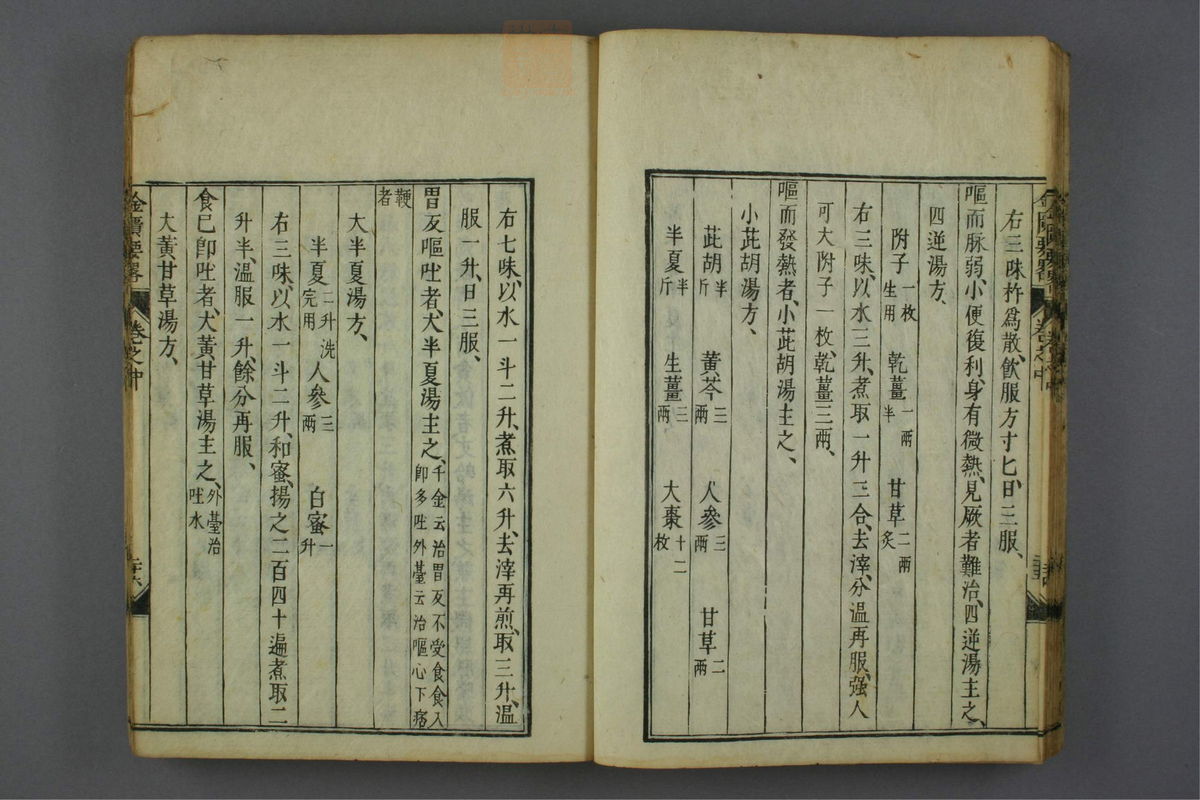 右三味杵爲散、飲服方寸匕、日三服、
嘔而脉弱、小便復利、身有微熱、見厥者難治、四逆湯主之、
四逆湯方、
附子一枚生用 乾薑一兩半 甘草二兩炙
右三味、以水三升、煮取一升三合、去滓、分温再服、强人
可大附子一枚、乾薑三兩、
嘔而發熱者、小茈胡湯主之、
小茈胡湯方、
茈胡半斤 黃芩三兩 人參三兩 甘草二兩
半夏半斤 生薑三兩 大棗十二枚
右七味、以水一斗二升、煮取六升、去滓再煎、取三升、温
服一升、日三服、
胃反嘔吐者、大半夏湯主之、千金云治胃反不受食食入即多吐外臺云治嘔心下痞
鞕者
大半夏湯方、
半夏二升洗完用 人參三兩 白蜜一升
右三味、以水一斗二升、和蜜、揚之二百四十遍煮取二
升半、温服一升、餘分再服、
食已即吐者、大黃甘草湯主之、外臺治吐水
大黃甘草湯方、
金匱要畧 卷之中 二十六